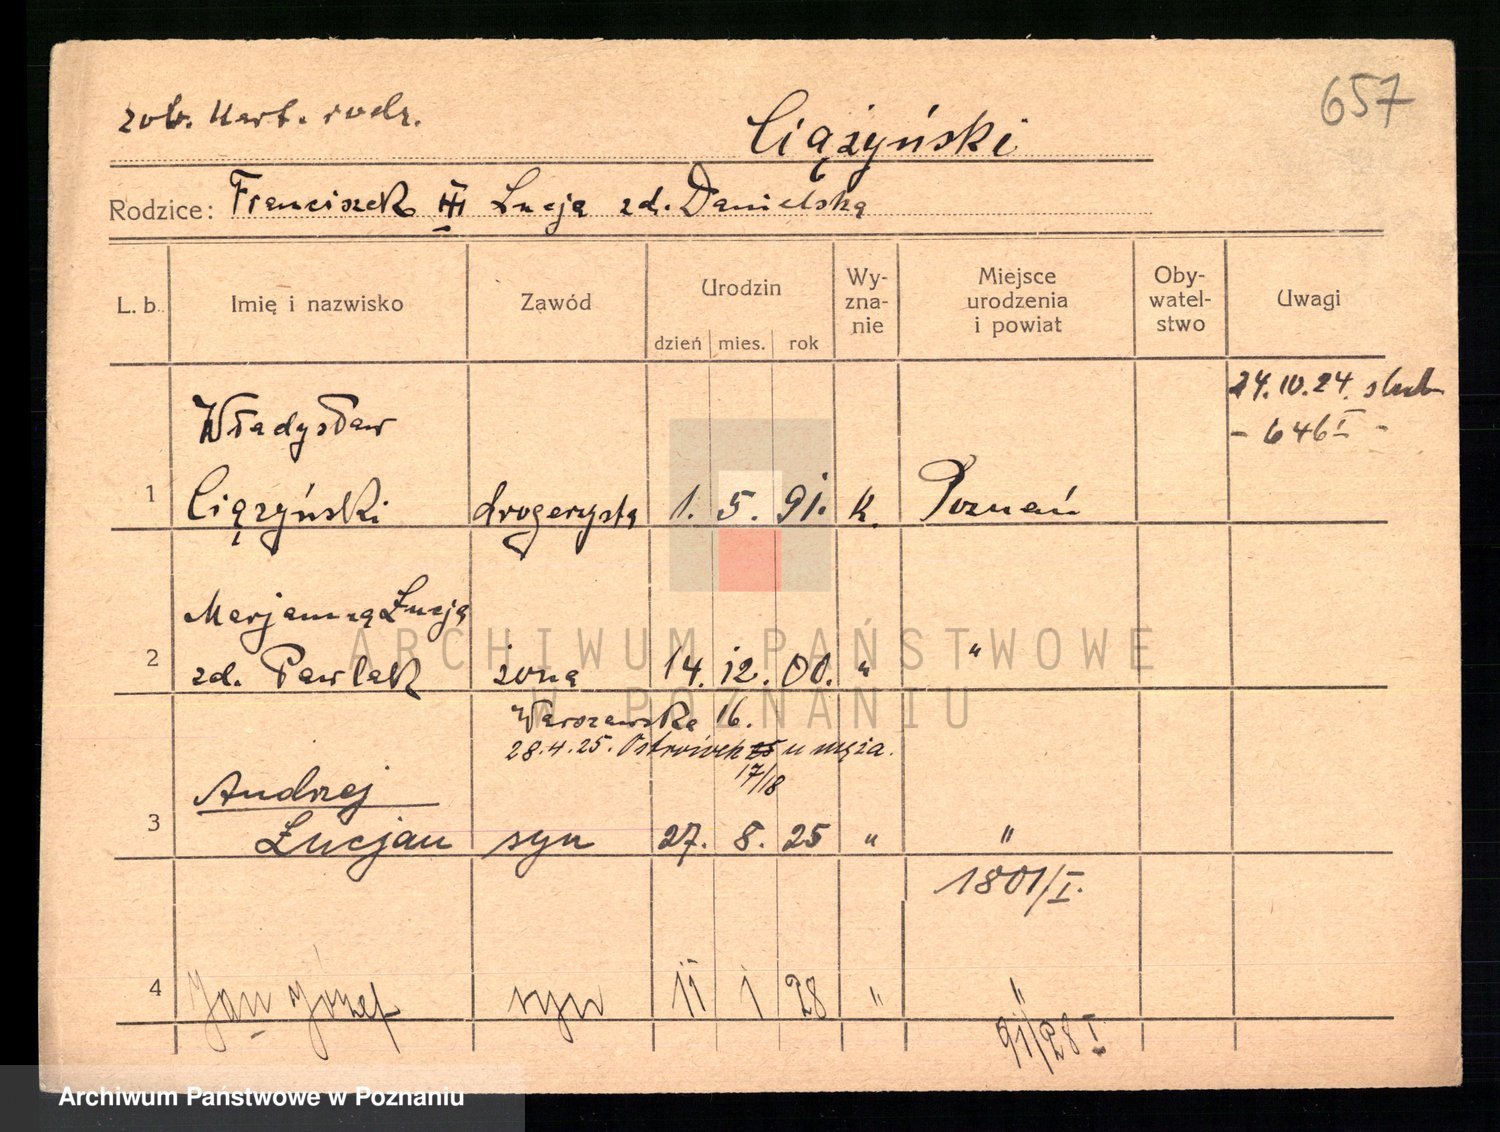 657
zob. Kart. rodz.
Ciążyński
Rodzice: Franciszek Łucja zd. Danielska
L. b. Imię i nazwisko Zawód Urodzin dzień mies. rok Wy-zna-nie Miejsce urodzenia i powiat Oby-watel-stwo Uwagi
24.10.24. ślub
- 646 I -
Władysław
1 Ciążyński drogerysta 1. 5. 91. k. Poznań
Marjanna Łucja
2 zd. Pawlak żona 14. 12. 00. " "
Warszawska 16.
28.4.25. Ostrówek 15 u męża.
17/18
Andrzej
3 Łucjan syn 27. 8. 25 " "
1801/I.
4 Jan Józef syn 11 1 28 " "
91/28 I
ARCHIWUM PAŃSTWOWE
W POZNANIU
Archiwum Państwowe w Poznaniu